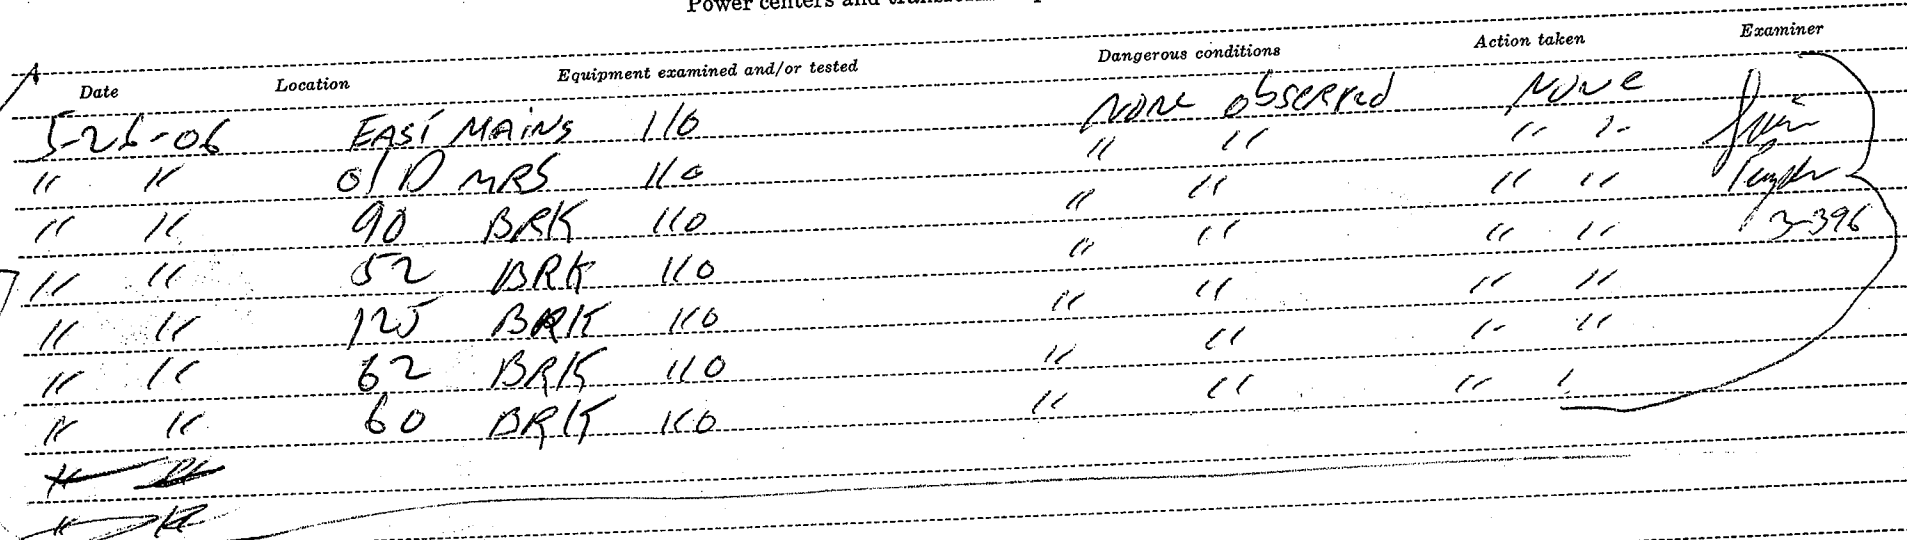 Power centers and
Date Location Equipment examined and/or tested Dangerous conditions Action taken Examiner
5-26-06 EAST MAINS 110 NONE observed NONE
" " old MRS 110 " " " "
" " 90 BRK 110 " " " "
" " 52 BRK 110 " " " " 3-396
" " 125 BRK 110 " " " "
" " 62 BRK 110 " " " "
" " 60 BRK 110 " " " "